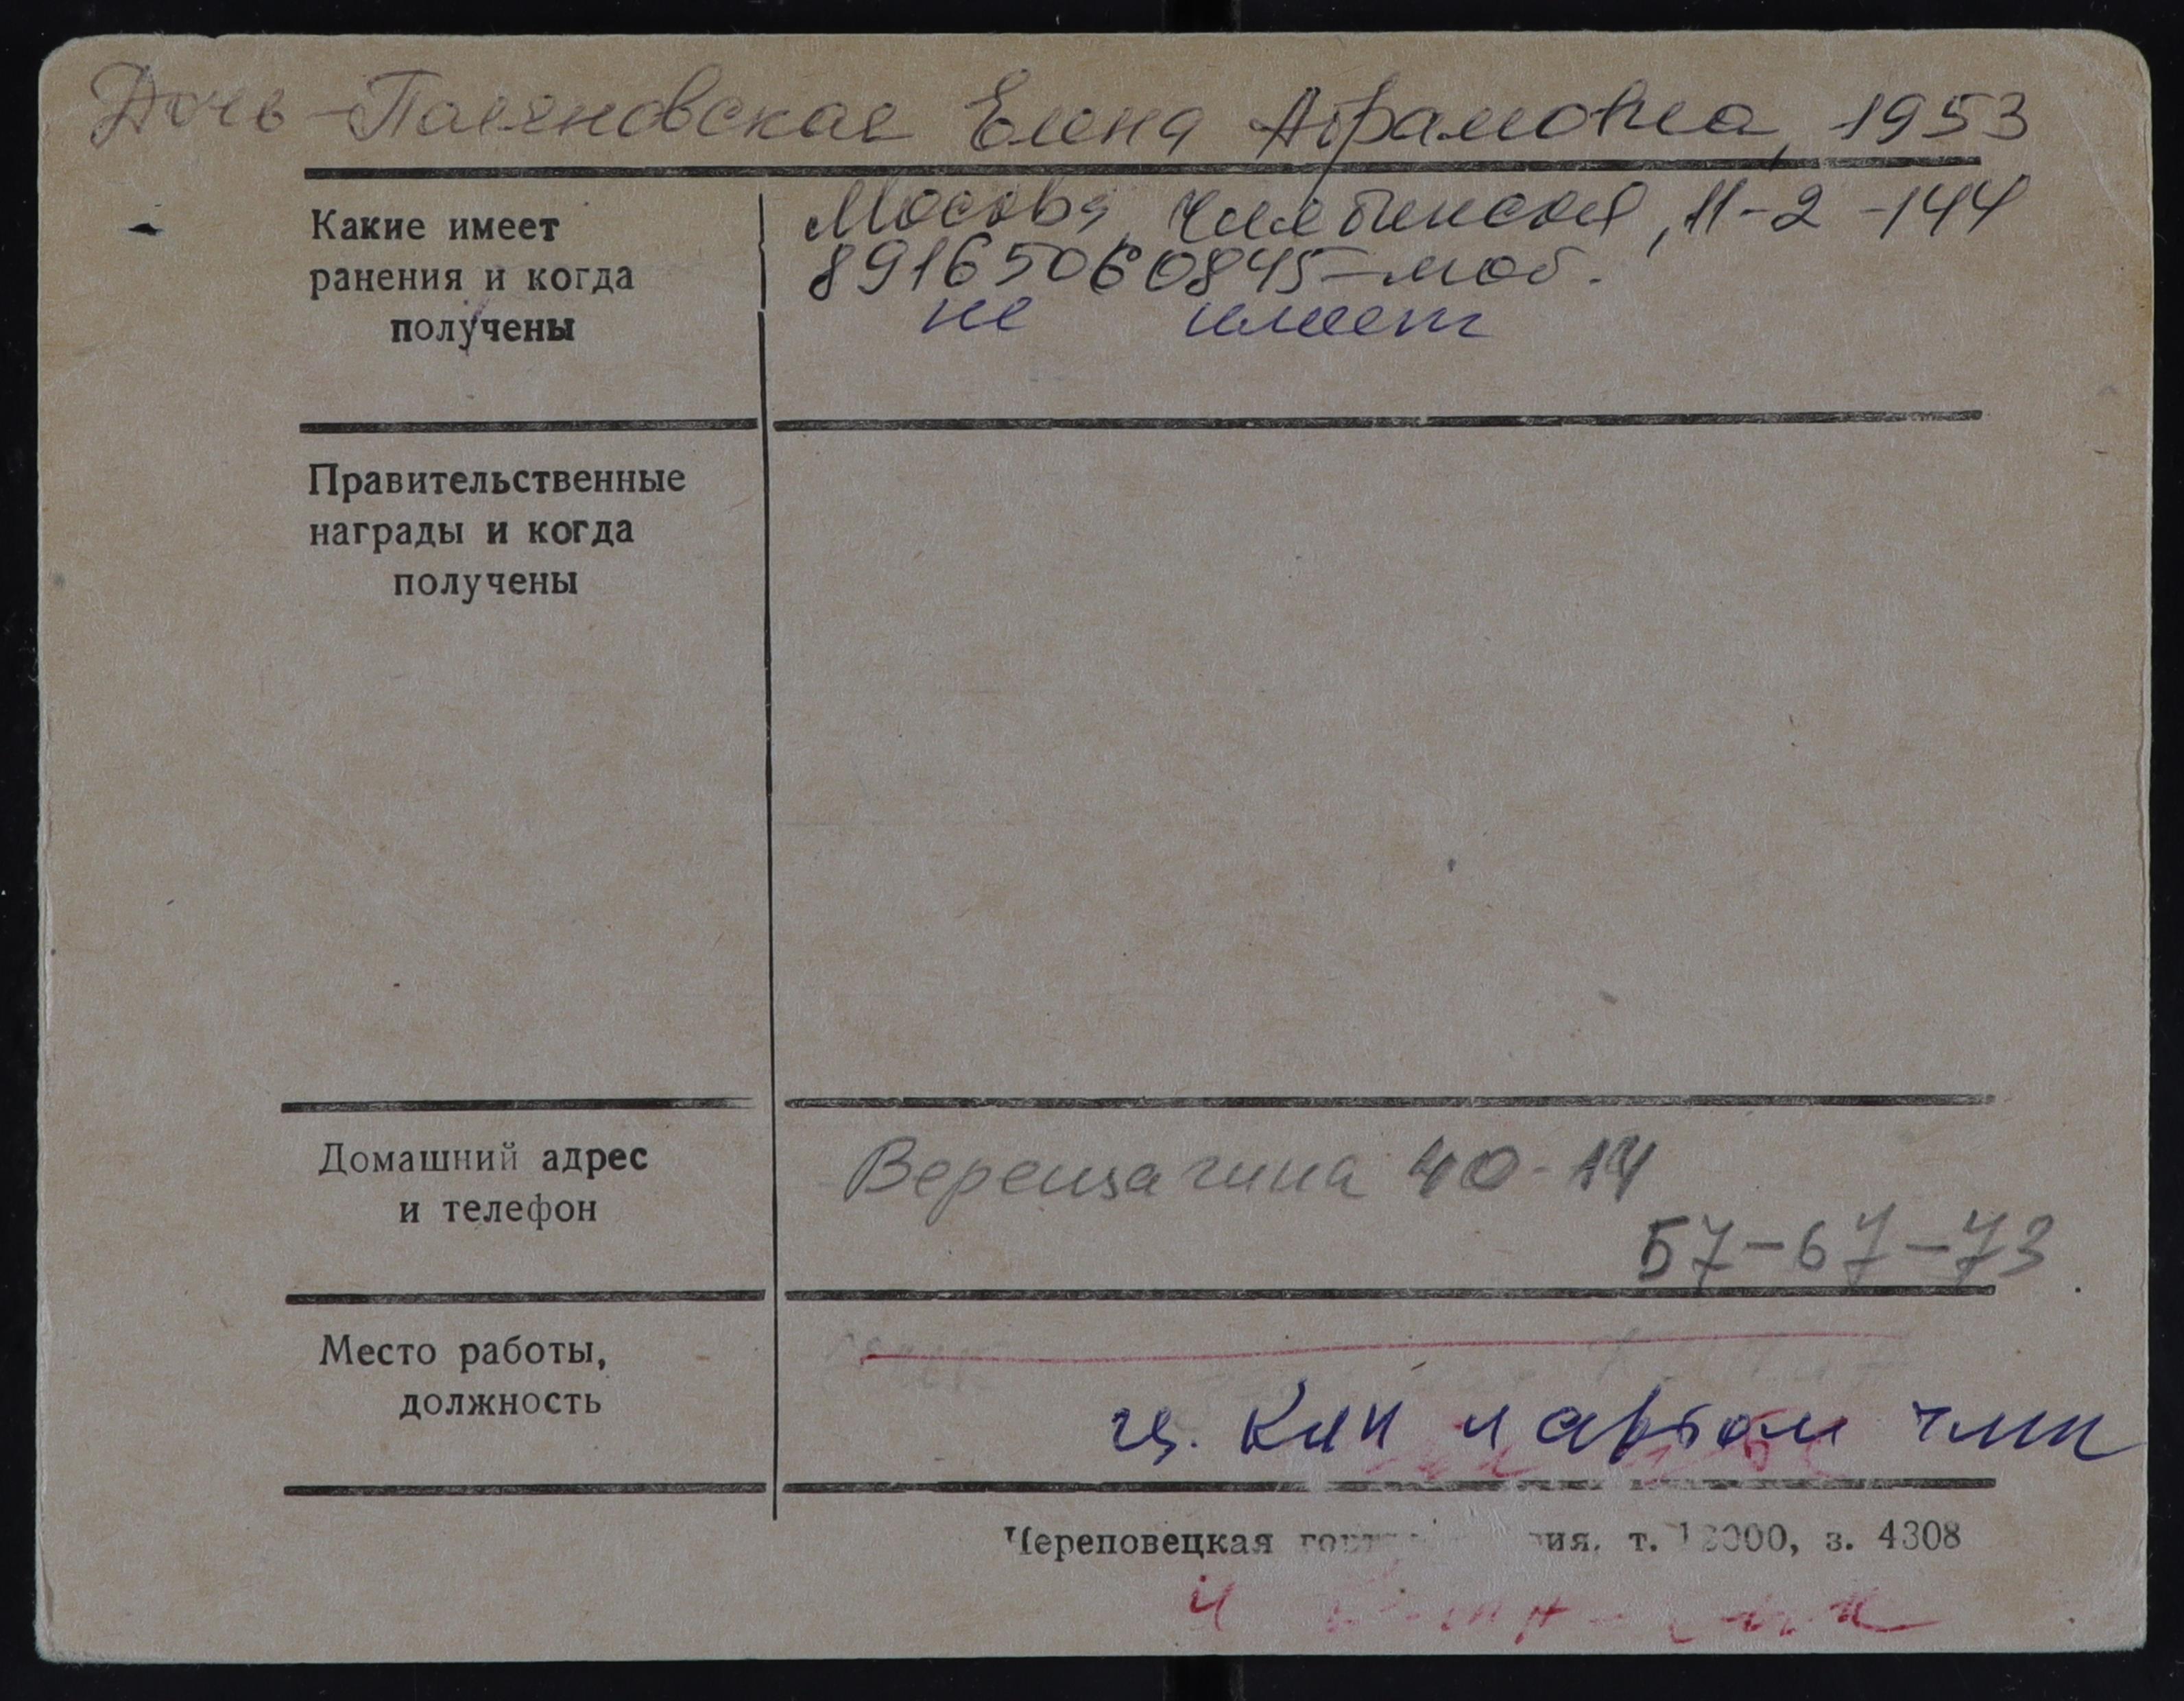 Дочь - Паеяновская Елена Абрамовна, 1953
Какие имеет
ранения и когда
получены
Москва, Челябинская, 11-2-144
89165060845-моб.
не имеет
Правительственные
награды и когда
получены
Домашний адрес
и телефон
Верещагина 40-14
57-67-73
Место работы,
должность
ц. КИП и автом ЧМК
Череповецкая т. 12000, з. 4308